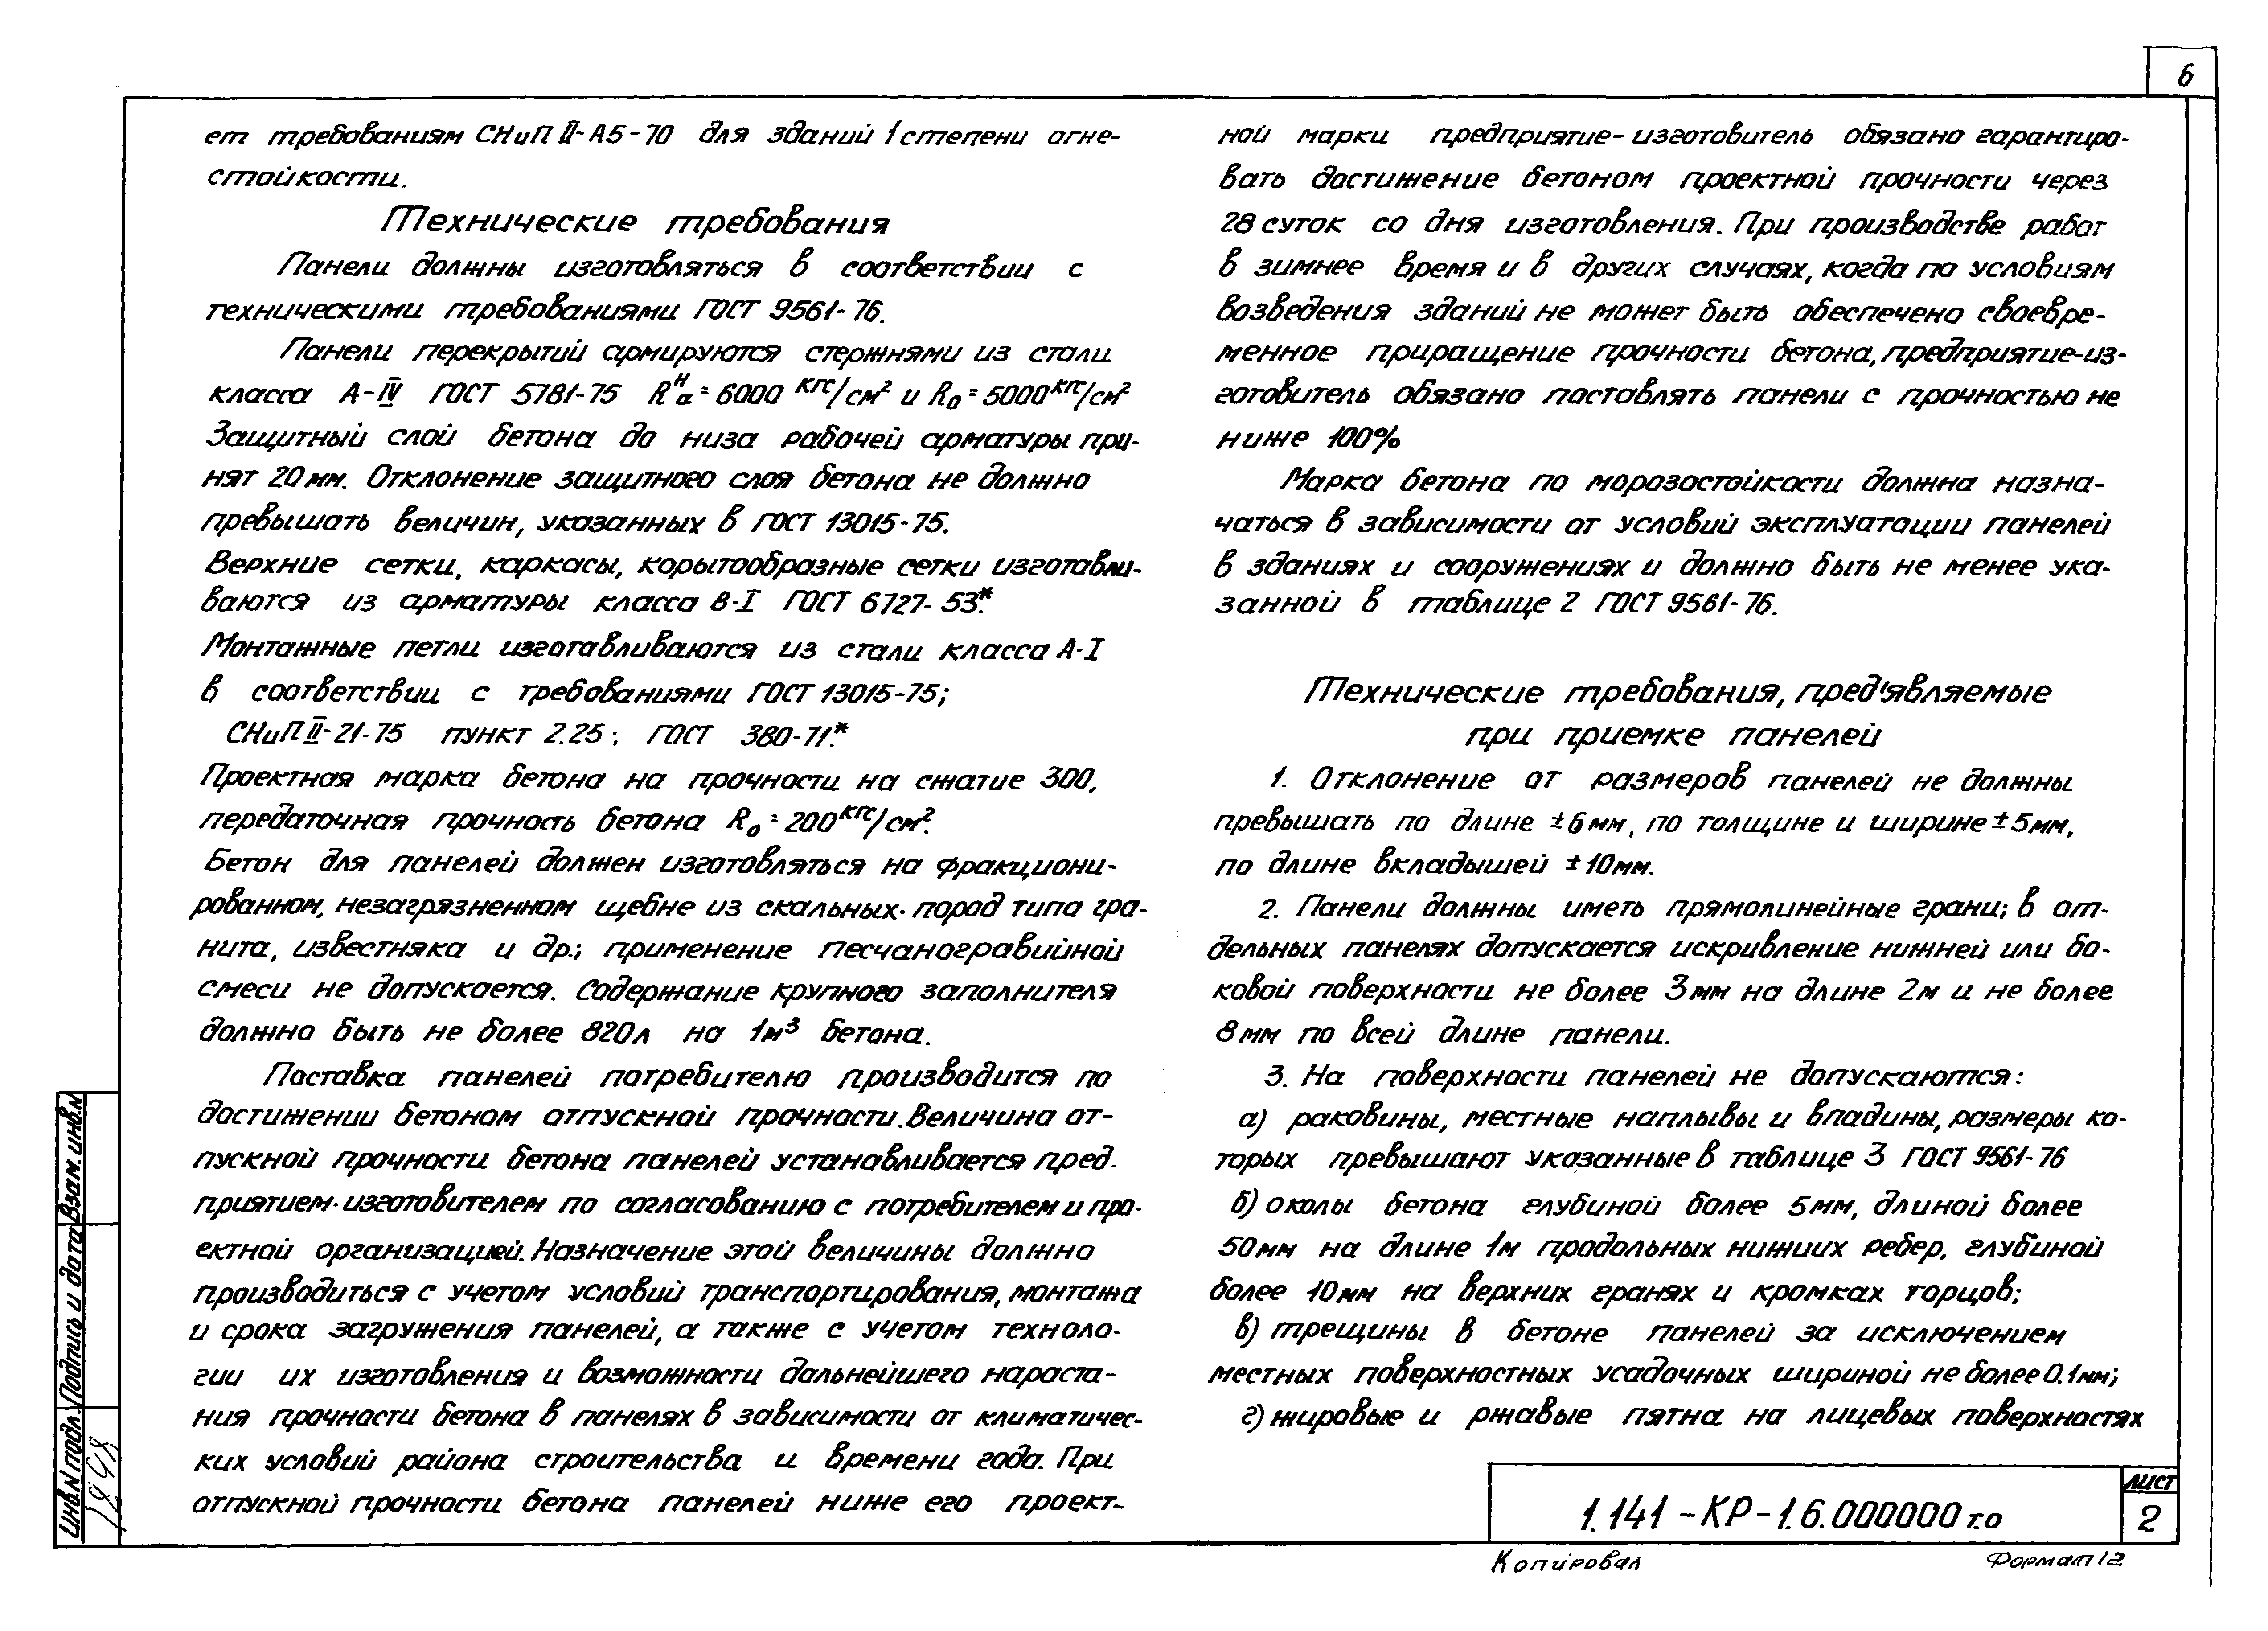 6
ет требованиям СНиП II-А5-70 для зданий 1 степени огне-
стойкости.
Технические требования
Панели должны изготовляться в соответствии с
техническими требованиями ГОСТ 9561-76.
Панели перекрытий армируются стержнями из стали
класса А-IV ГОСТ 5781-75 Rᴴₐ=6000 кгс/см² и R₀=5000 кгс/см²
Защитный слой бетона до низа рабочей арматуры при-
нят 20 мм. Отклонение защитного слоя бетона не должно
превышать величин, указанных в ГОСТ 13015-75.
Верхние сетки, каркасы, корытообразные сетки изготавли-
ваются из арматуры класса В-I ГОСТ 6727-53*.
Монтажные петли изготавливаются из стали класса А-I
в соответствии с требованиями ГОСТ 13015-75;
СНиП II-21-75 пункт 2.25; ГОСТ 380-71*.
Проектная марка бетона на прочности на сжатие 300,
передаточная прочность бетона R₀=200 кгс/см².
Бетон для панелей должен изготовляться на фракциони-
рованном, незагрязненном щебне из скальных пород типа гра-
нита, известняка и др.; применение песчаногравийной
смеси не допускается. Содержание крупного заполнителя
должно быть не более 820л на 1м³ бетона.
Поставка панелей потребителю производится по
достижении бетоном отпускной прочности. Величина от-
пускной прочности бетона панелей устанавливается пред-
приятием-изготовителем по согласованию с потребителем и про-
ектной организацией. Назначение этой величины должно
производиться с учетом условий транспортирования, монтажа
и срока загружения панелей, а также с учетом техноло-
гии их изготовления и возможности дальнейшего нараста-
ния прочности бетона в панелях в зависимости от климатичес-
ких условий района строительства и времени года. При
отпускной прочности бетона панелей ниже его проект-
ной марки предприятие-изготовитель обязано гарантиро-
вать достижение бетоном проектной прочности через
28 суток со дня изготовления. При производстве работ
в зимнее время и в других случаях, когда по условиям
возведения зданий не может быть обеспечено своевре-
менное приращение прочности бетона, предприятие-из-
готовитель обязано поставлять панели с прочностью не
ниже 100%
Марка бетона по морозостойкости должна назна-
чаться в зависимости от условий эксплуатации панелей
в зданиях и сооружениях и должно быть не менее ука-
занной в таблице 2 ГОСТ 9561-76.
Технические требования, пред'являемые
при приемке панелей
1. Отклонение от размеров панелей не должны
превышать по длине ±6мм, по толщине и ширине ±5мм,
по длине вкладышей ±10мм.
2. Панели должны иметь прямолинейные грани; в от-
дельных панелях допускается искривление нижней или бо-
ковой поверхности не более 3мм на длине 2м и не более
8мм по всей длине панели.
3. На поверхности панелей не допускаются:
а) раковины, местные наплывы и впадины, размеры ко-
торых превышают указанные в таблице 3 ГОСТ 9561-76
б) околы бетона глубиной более 5мм, длиной более
50мм на длине 1м продольных нижних ребер, глубиной
более 10мм на верхних гранях и кромках торцов;
в) трещины в бетоне панелей за исключением
местных поверхностных усадочных шириной не более 0.1мм;
г) жировые и ржавые пятна на лицевых поверхностях
1.141-КР-1.6.000000 т.о
ЛИСТ
2
Копировал
Формат 12
Взам. инв.N
Подпись и дата
Инв.N подл.